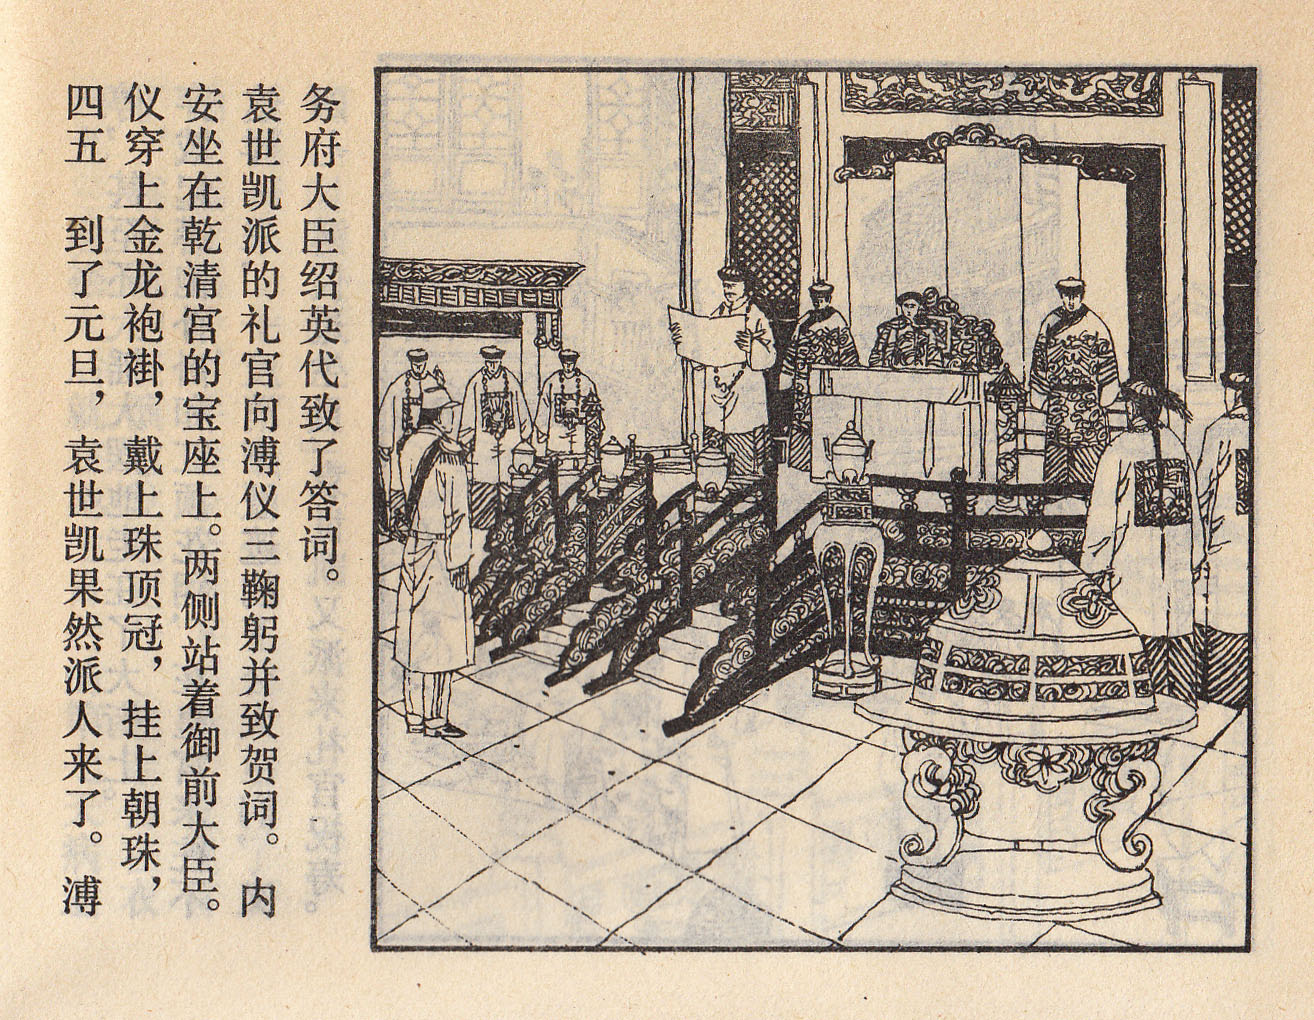 四五　到了元旦，袁世凯果然派人来了。溥
仪穿上金龙袍褂，戴上珠顶冠，挂上朝珠，
安坐在乾清宫的宝座上。两侧站着御前大臣。
袁世凯派的礼官向溥仪三鞠躬并致贺词。内
务府大臣绍英代致了答词。